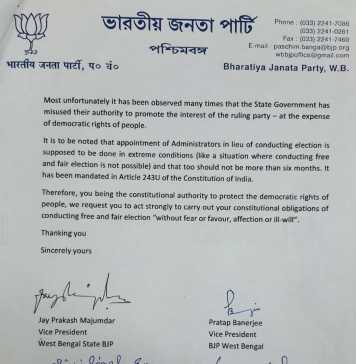 ভারতীয় জনতা পার্টি
পশ্চিমবঙ্গ
भारतीय जनता पार्टी, प० बं०
Phone : (033) 2241-7086
(033) 2241-0261
Fax : (033) 2241-7469
E.mail : paschim.banga@bjp.org
wbbjpoffice@gmail.com
Bharatiya Janata Party, W.B.
Most unfortunately it has been observed many times that the State Government has
misused their authority to promote the interest of the ruling party – at the expense
of democratic rights of people.
It is to be noted that appointment of Administrators in lieu of conducting election is
supposed to be done in extreme conditions (like a situation where conducting free
and fair election is not possible) and that too should not be more than six months. It
has been mandated in Article 243U of the Constitution of India.
Therefore, you being the constitutional authority to protect the democratic rights of
people, we request you to act strongly to carry out your constitutional obligations of
conducting free and fair election "without fear or favour, affection or ill-will".
Thanking you
Sincerely yours
Jay Prakash Majumdar
Vice President
West Bengal State BJP
Pratap Banerjee
Vice President
BJP West Bengal